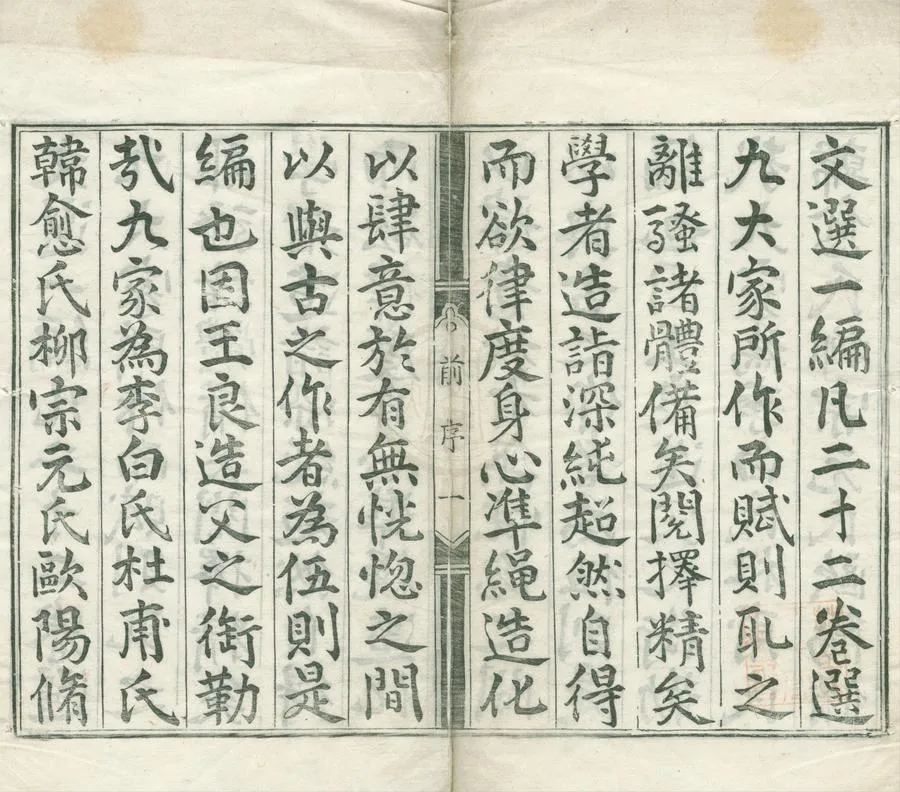 文選一編凡二十二卷選
九大家所作而賦則取之
離騷諸體備矣閱擇精矣
學者造詣深純超然自得
而欲律度身心準繩造化
前序 一
以肆意於有無恍惚之間
以與古之作者為伍則是
編也固王良造父之銜勒
哉九家為李白氏杜甫氏
韓愈氏柳宗元氏歐陽脩